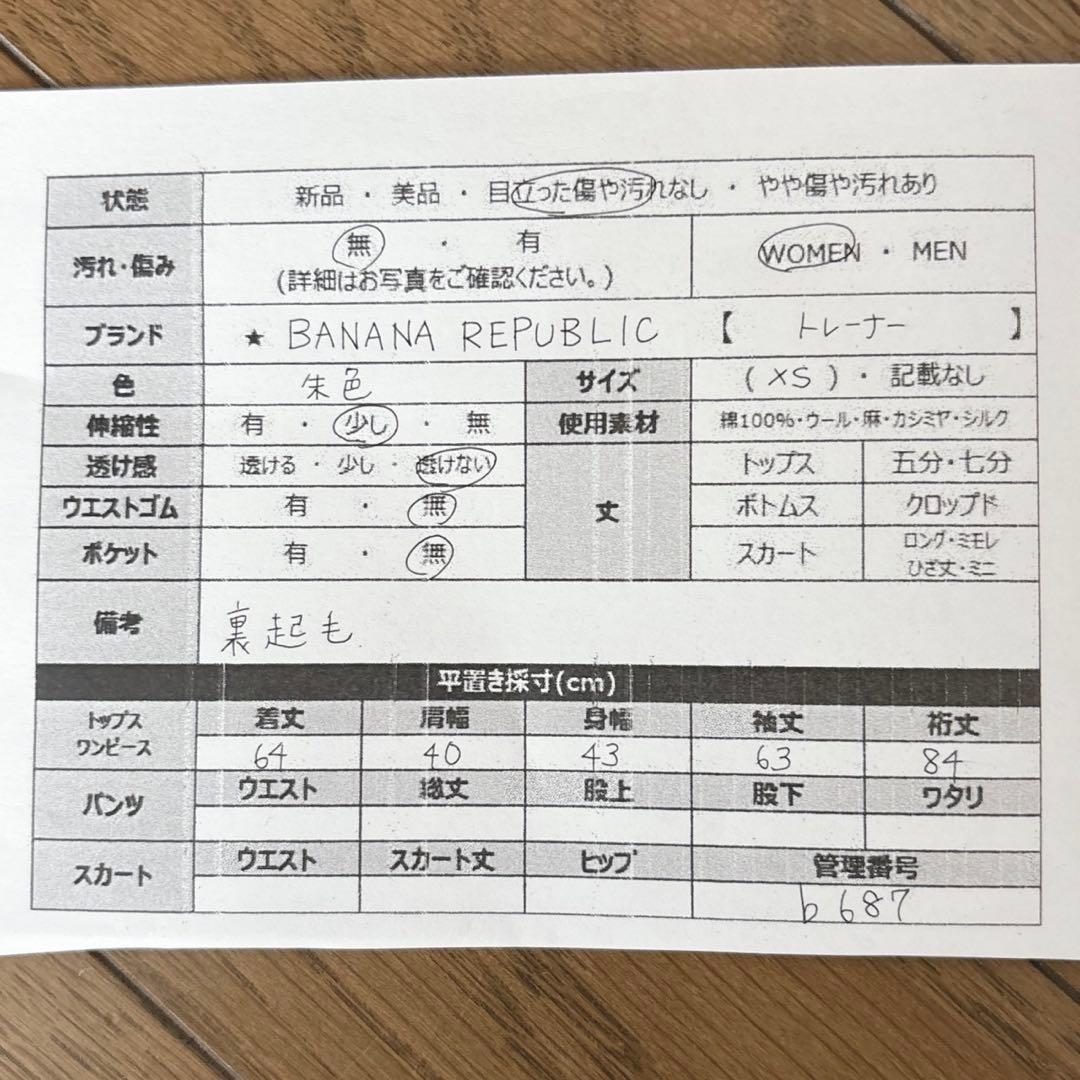 状態 新品 ・ 美品 ・ 目立った傷や汚れなし ・ やや傷や汚れあり
汚れ・傷み 無 ・ 有 WOMEN ・ MEN
(詳細はお写真をご確認ください。)
ブランド ★ BANANA REPUBLIC 【 トレーナー 】
色 朱色 サイズ ( XS ) ・ 記載なし
伸縮性 有 ・ 少し ・ 無 使用素材 綿100%・ウール・麻・カシミヤ・シルク
透け感 透ける ・ 少し ・ 透けない 丈 トップス 五分・七分
ウエストゴム 有 ・ 無 ボトムス クロップド
ポケット 有 ・ 無 スカート ロング・ミモレ
ひざ丈・ミニ
備考 裏起も
平置き採寸(cm)
トップス ワンピース 着丈 肩幅 身幅 袖丈 裄丈
64 40 43 63 84
パンツ ウエスト 総丈 股上 股下 ワタリ
スカート ウエスト スカート丈 ヒップ 管理番号
b687